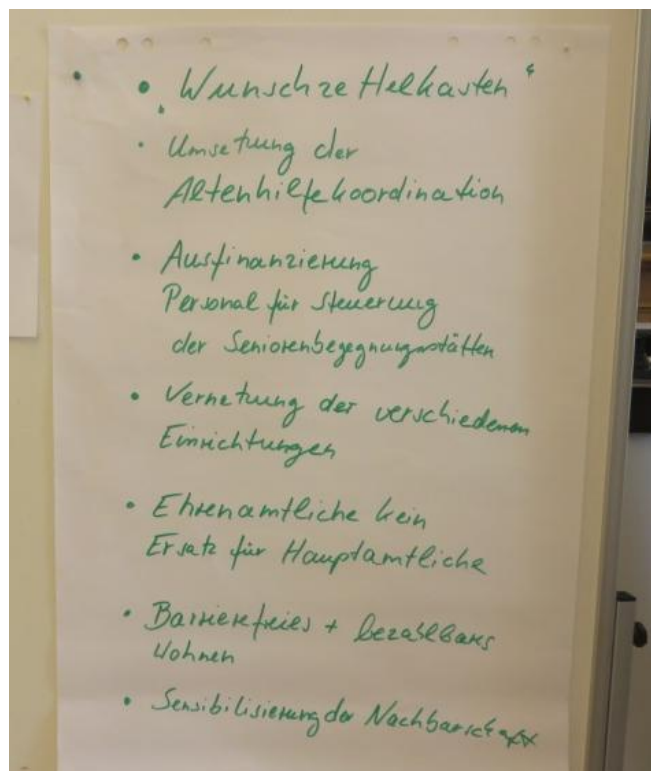 • „Wunschzettelkasten“
• Umsetzung der
Altenhilfekoordination
• Ausfinanzierung
Personal für Steuerung
der Seniorenbegegnungsstätten
• Vernetzung der verschiedenen
Einrichtungen
• Ehrenamtliche kein
Ersatz für Hauptamtliche
• Barrierefreies + bezahlbares
Wohnen
• Sensibilisierung der Nachbarschaft